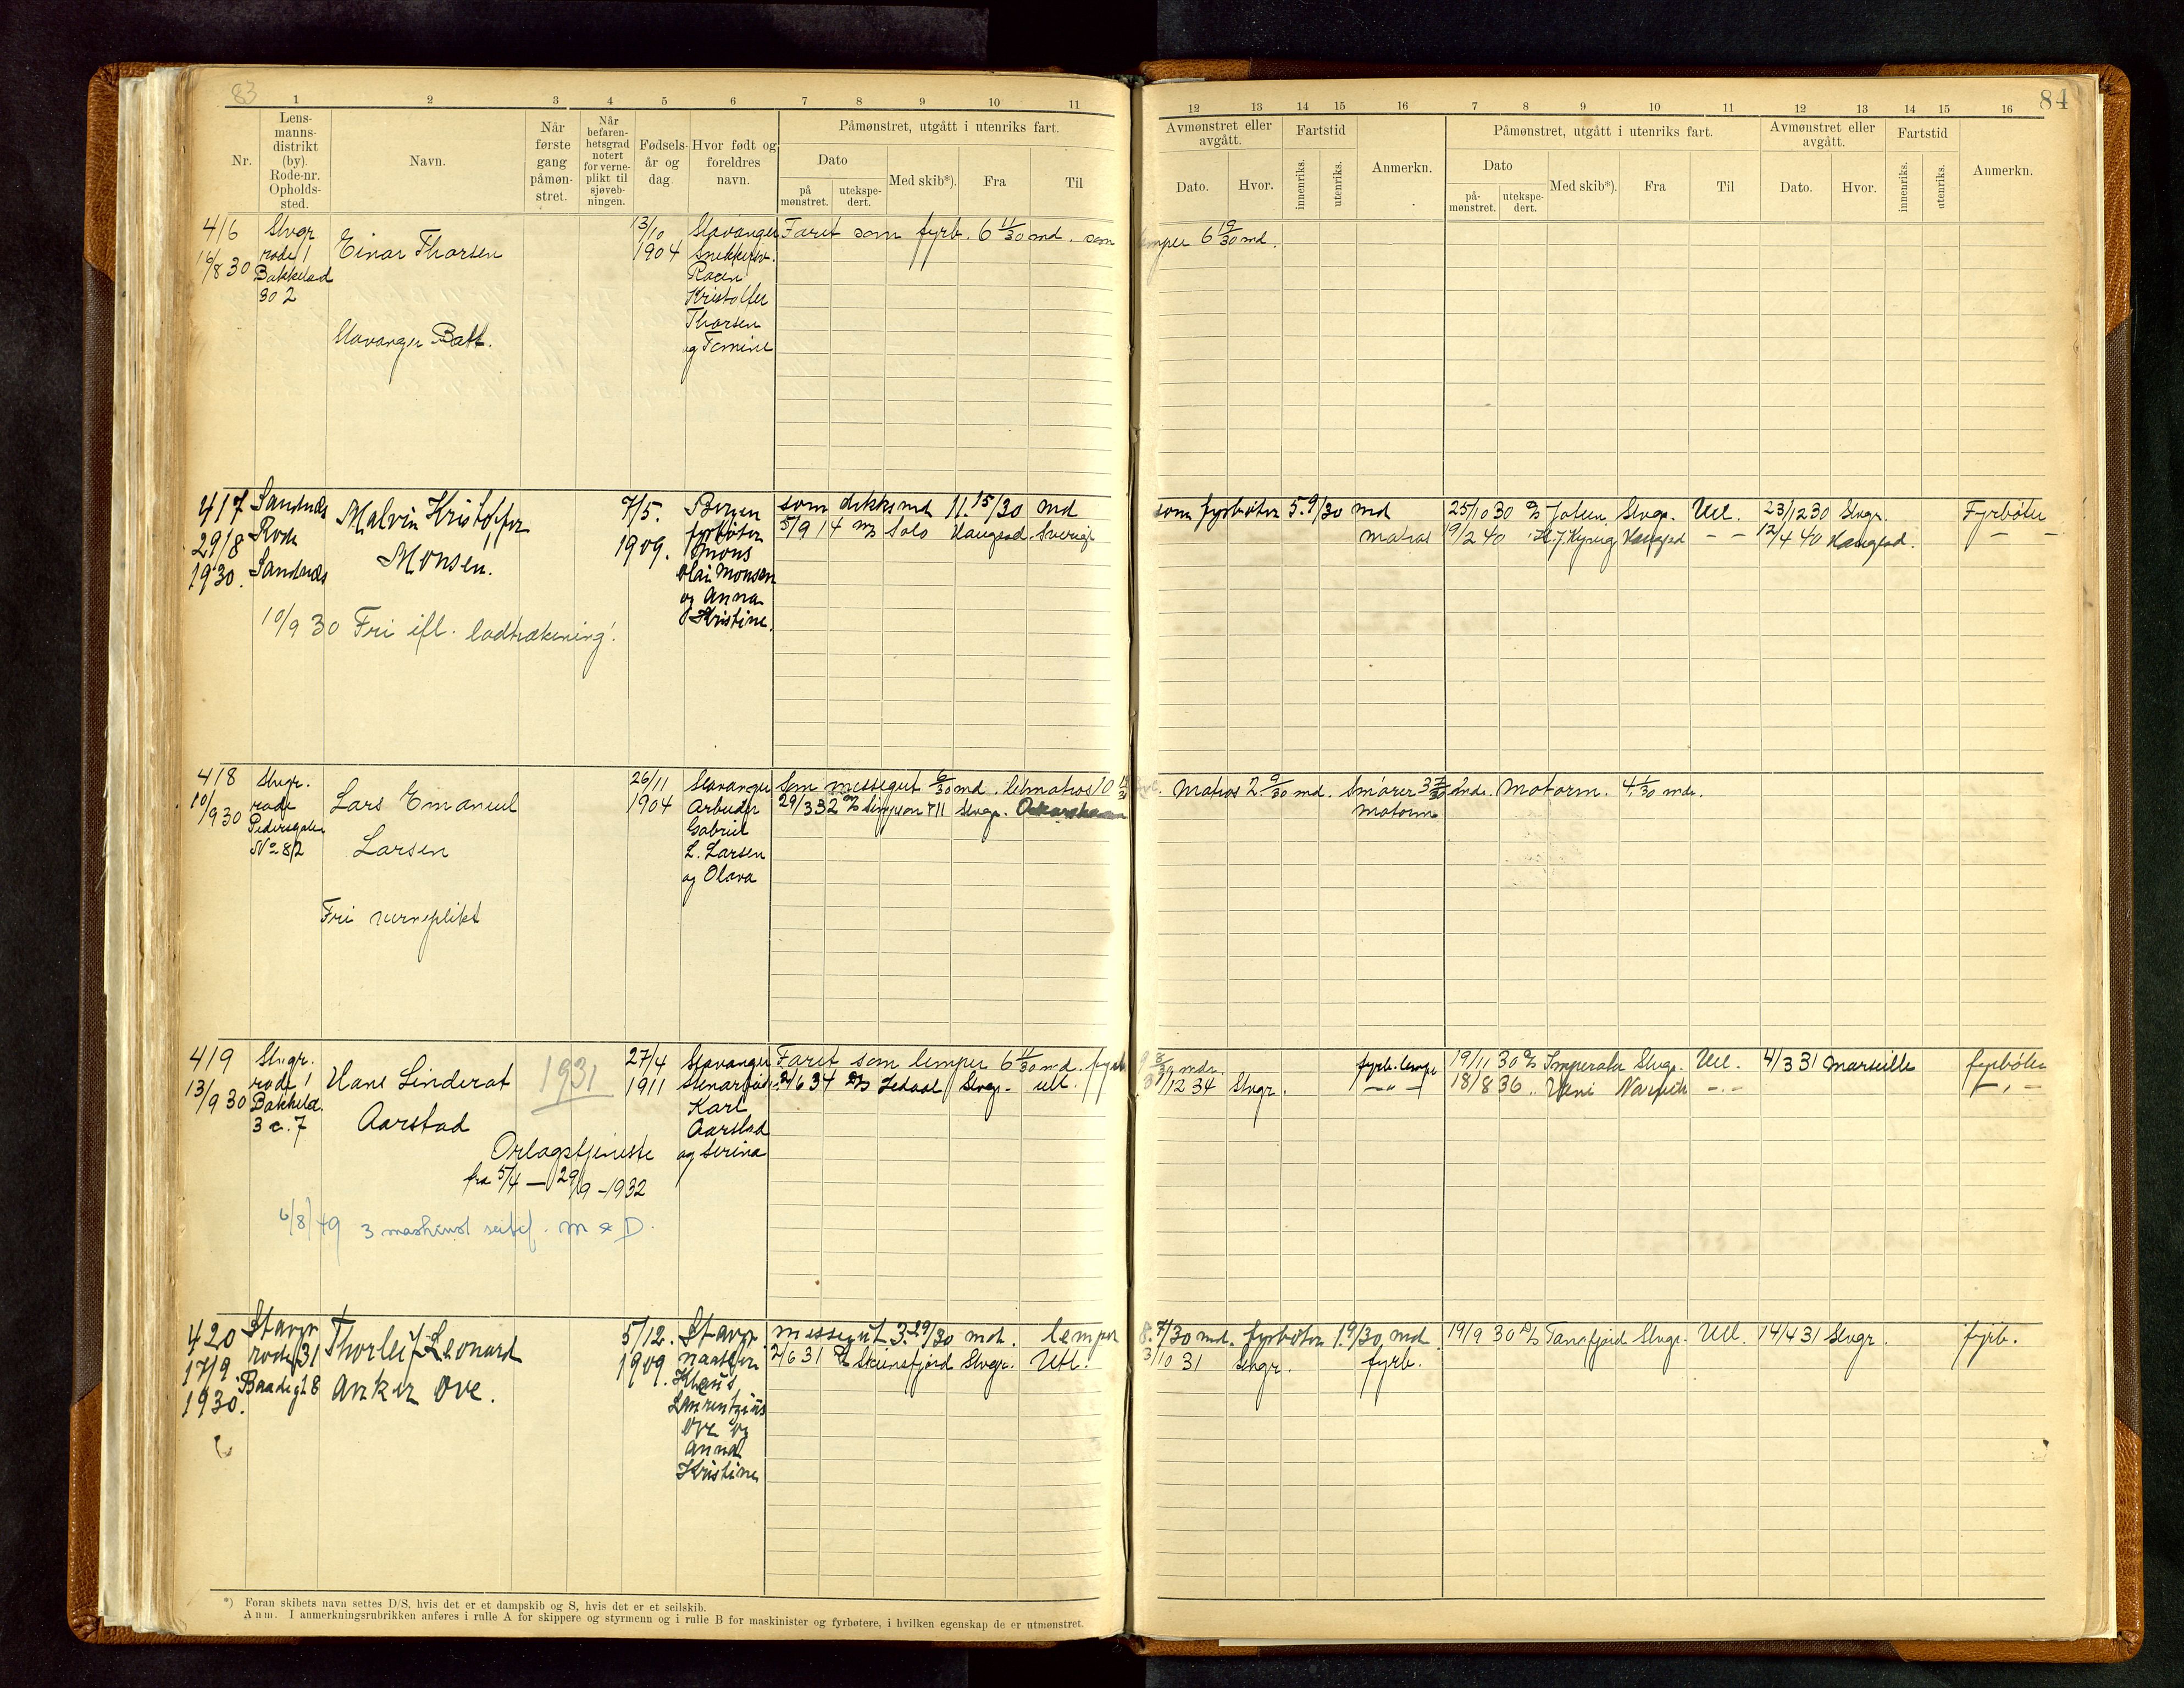 83
84
1 2 3 4 5 6 7 8 9 10 11
12 13 14 15 16 7 8 9 10 11 12 13 14 15 16
Nr.
Lens-
manns-
distrikt
(by).
Rode-nr.
Opholds-
sted.
Navn.
Når
første
gang
påmøn-
stret.
Når
befaren-
hetsgrad
notert
for verne-
plikt til
sjøveb-
ningen.
Fødsels-
år og
dag.
Hvor født og
foreldres
navn.
Påmønstret, utgått i utenriks fart.
Dato
på
mønstret.
utekspe-
dert.
Med skib*).
Fra
Til
Avmønstret eller
avgått.
Dato.
Hvor.
Fartstid
innenriks.
utenriks.
Anmerkn.
Påmønstret, utgått i utenriks fart.
Dato
på-
mønstret.
utekspe-
dert.
Med skib*).
Fra
Til
Avmønstret eller
avgått.
Dato.
Hvor.
Fartstid
innenriks.
utenriks.
Anmerkn.
416
16/8 30
Stvgr
rode 1
30 2
Einar Thorsen
Stavanger Batt.
13/10
1904
Stavanger
Kristoffer
Thorsen
og Tomine
Faret som fyrb. 6 11/30 md. som
lemper 6 19/30 md.
417
29/8
1930.
Sandnes
Rode
Sandnes
Malvin Kristoffer
Monsen.
10/9 30 Fri ifl. lodtrækning.
7/5.
1909.
Bergen
fyrbøter
Mons
Olai Monsen
og Anna
Kristine.
som dekksmd 11.15/30 md
som fyrbøter 5.9/30 md
Solo Haugesd. Sverig
matros
25/10 30 D/S Jolun Stvgr. Utl. 23/12 30 Stvgr. Fyrbøter
19/2 40 Haugesd - - 12/4 40 Haugesd. - -
418
10/9 30
Stvgr.
rode
Pedersgaten
No 82
Lars Emanuel
Larsen
Fri verneplikt
26/11
1904
Stavanger
Arbeider
Gabriel
L. Larsen
og Olava
Som messegut 6/30 md. letmatros 10
29/3 32 Stvgr.
Matros 2 9/30 md. Smører 3 mdr. Motorm. 4 1/30 md.
Motorm
419
13/9 30
Stvgr.
rode 1
Bakkeld.
3 c. 7
Hans Linderot
Aarstad
1931
Orlogstjeneste
fra 5/4 – 29/9 – 1932
6/8/49 3 maskinist sertif. M & D.
27/4
1911
Stavanger
Karl
Aarstad
og Serina
Faret som lemper 6 11/30 md. fyrb
2/6 34 D/S Ledaal Stvgr. utl.
9 8/30 mdr.
3/12 34 Stvgr.
fyrb. lemper
- " -
19/11 30 D/S Imperator Stvgr. Utl. 4/3 31 Marseille fyrbøter
18/8 36 Veni Narvik - . -
- , -
420
17/9
1930.
Stavgr
rode 31
Baadegt 8
Thorleif Leonard
Anker Ove.
5/12.
1909.
Stavgr.
Naatler
Klaus
Laurentzius
Ove og
Anna
Kristine
messegut 3.29/30 md. lemper
2/6 31 D/S Steinsfjord Stvgr. Utl.
8.7/30 md. fyrbøter 1.9/30 md.
3/10 31 Stvgr. fyrb.
19/9 30 D/S Tanafjord Stvgr. Utl. 14/4 31 Stvgr. fyrb.
*) Foran skibets navn settes D/S, hvis det er et dampskib og S, hvis det er et seilskib.
Anm. I anmerkningsrubrikken anføres i rulle A for skippere og styrmenn og i rulle B for maskinister og fyrbøtere, i hvilken egenskap de er utmønstret.